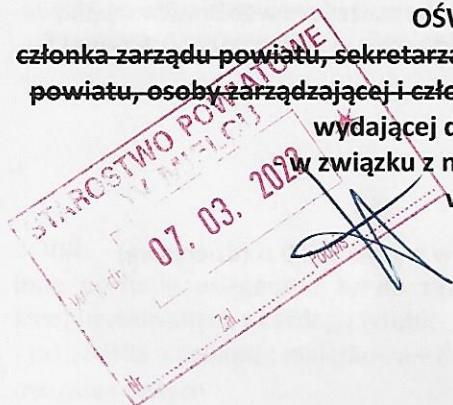 OŚW
członka zarządu powiatu, sekretarza
powiatu, osoby zarządzającej i czło
wydającej d
w związku z n
STAROSTWO POWIATOWE
W MIELCU
07. 03. 2023
Podpis
Nr
Zał